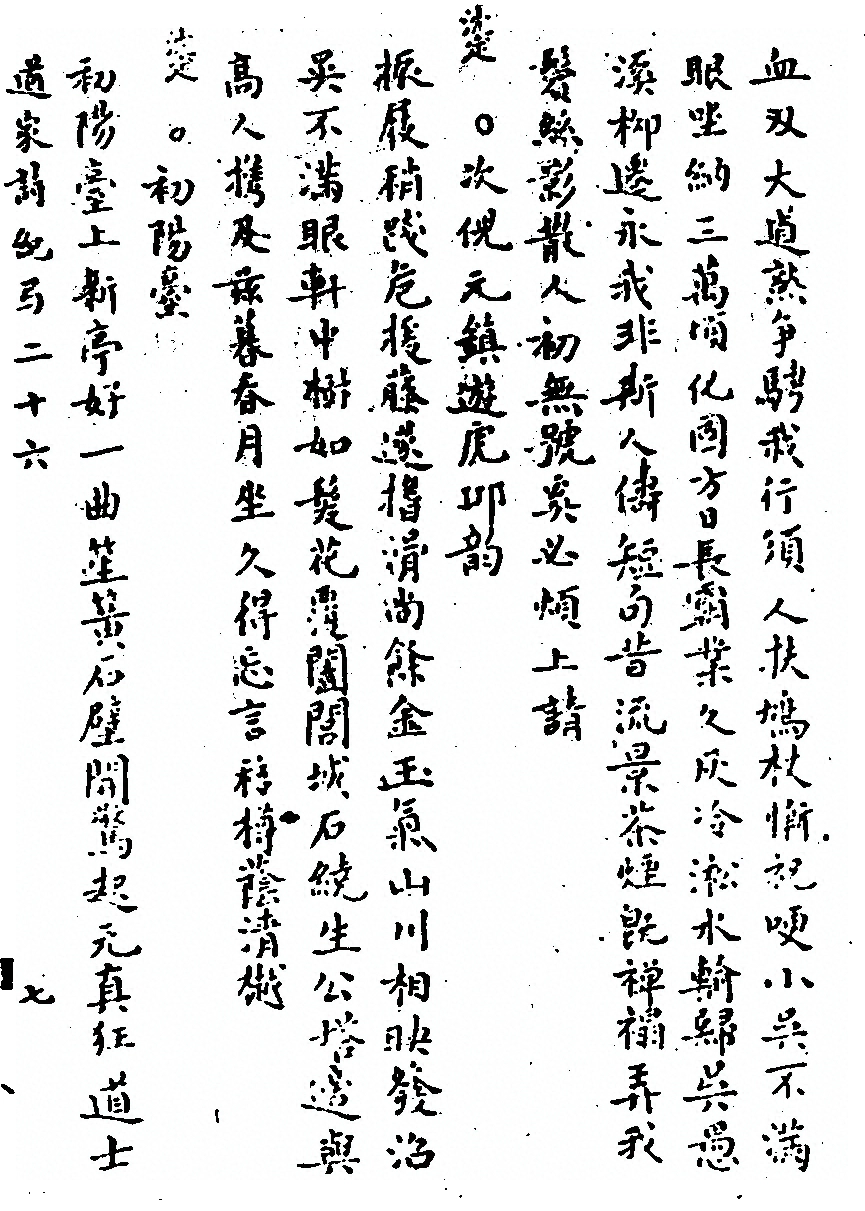 血双大道熟争騁我行須人扶鳩杖慚祝哽小吳不滿
眼坐納三萬頃化國方日長霸業久灰冷淞水輸歸吳愚
溪柳邊永我非斯人儔短句昔流景茶煙既禪榻弄我
鬢絲影散人初無號奚必煩上請
次倪元鎮遊虎邱韵
振屐稍踐危援藤遂捫滑尚餘金玉氣山川相映發沼
吳不滿眼軒中樹如髮花覆闔閭城石繞生公塔邊與
高人攜及茲暮春月坐久得忘言移樽蔭清樾
初陽臺
初陽臺上新亭好一曲笙簧石壁開驚起元真狂道士
道家詩紀弓二十六
七